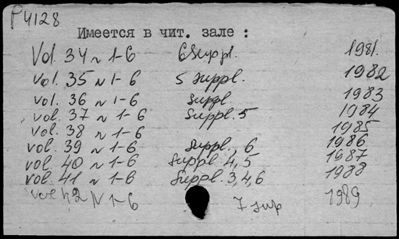 P4128
Имеется в чит. зале :
Vol. 34 N 1-6 6 Suppl. 1981.
vol. 35 N 1-6 5 suppl. 1982
vol. 36 N 1-6 suppl 1983
vol. 37 N 1-6 Suppl. 5 1984
vol. 38 N 1-6 1985
vol. 39 N 1-6 suppl., 6 1986
vol. 40 N 1-6 Suppl. 4,5 1987
vol. 41 N 1-6 Suppl. 3,4,6 1988
vol 42 N 1-6 7 sup 1989